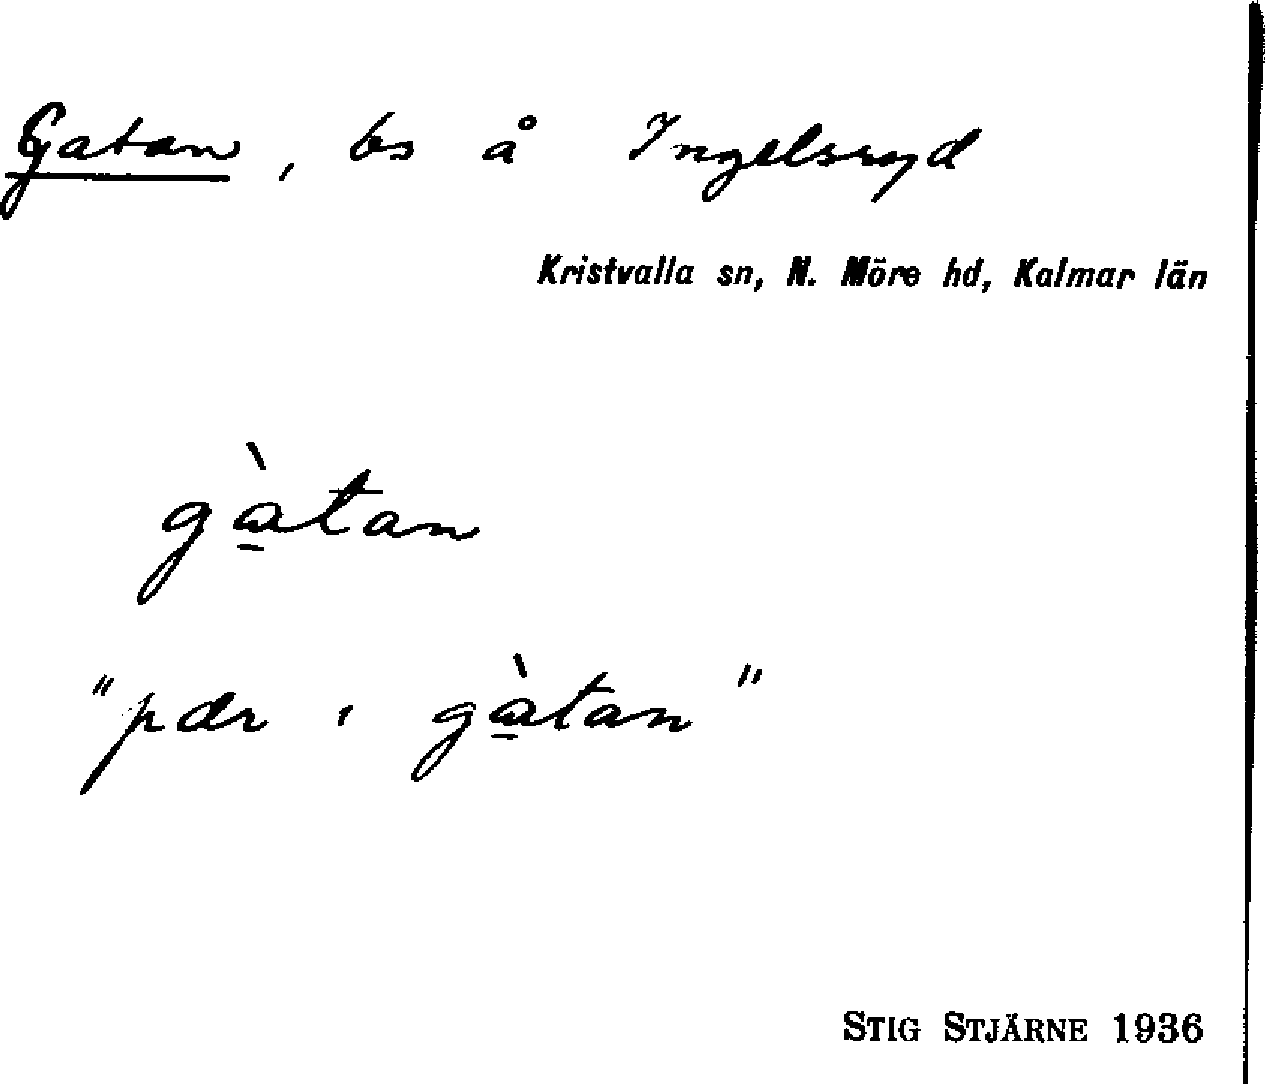 Gatan, bs å Ingelsryd
Kristvalla sn, N. Möre hd, Kalmar län
gà̱tan
"pær ı gà̱tan"
STIG STJÄRNE 1936